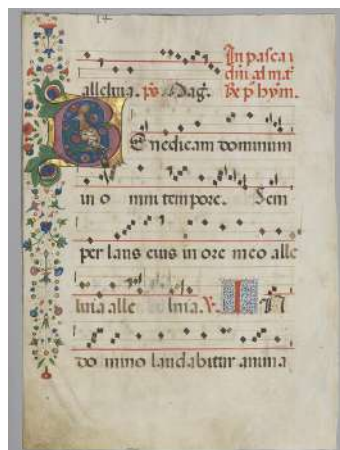 alleluia. ps Mag̃.
In pasca
Benedicam dominum
in o mni tempore. Sem
per laus eius in ore meo alle
luia alle luia. V. IN
do mino laudabitur anima